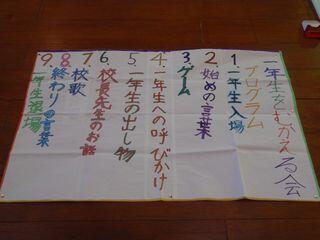 一年生をむかえる会
プログラム
1. 一年生入場
2. 始めの言葉
3. ゲーム
4. 一年生への呼びかけ
5. 一年生の出し物
6. 校長先生のお話
7. 校歌
8. 終わりの言葉
9. 一年生退場